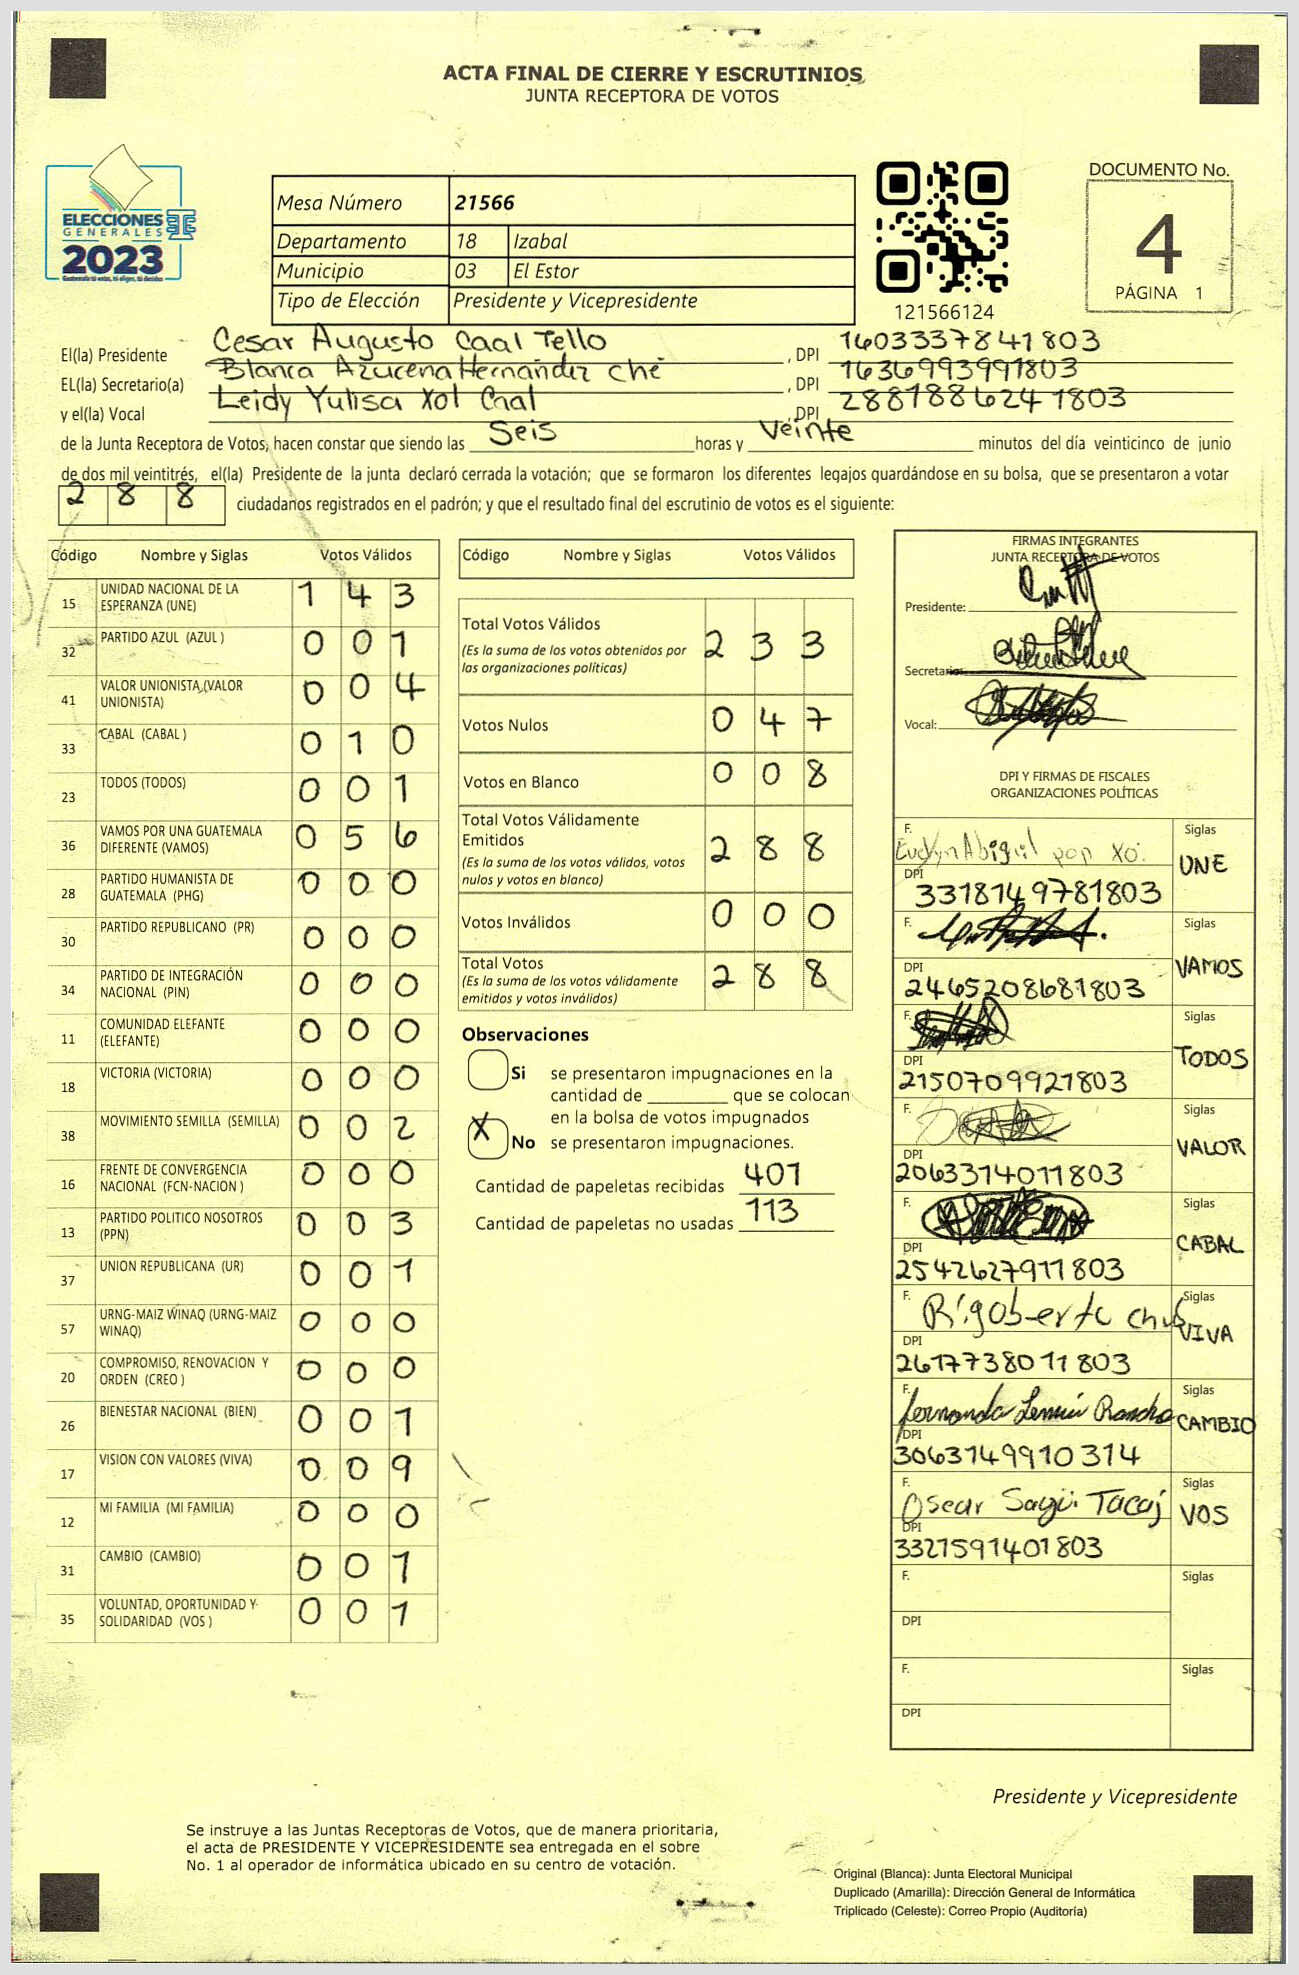 ACTA FINAL DE CIERRE Y ESCRUTINIOS
JUNTA RECEPTORA DE VOTOS
ELECCIONES
GENERALES
2023
Mesa Número 21566
Departamento 18 Izabal
Municipio 03 El Estor
Tipo de Elección Presidente y Vicepresidente
121566124
DOCUMENTO No.
4
PÁGINA 1
El(la) Presidente Cesar Augusto Caal Tello , DPI 1603337841803
EL(la) Secretario(a) Blanca Azucena Hernández Ché , DPI 1636993991803
y el(la) Vocal Leidy Yulisa Xol Caal , DPI 2881886241803
de la Junta Receptora de Votos, hacen constar que siendo las Seis horas y Veinte minutos del día veinticinco de junio
de dos mil veintitrés, el(la) Presidente de la junta declaró cerrada la votación; que se formaron los diferentes legajos quardándose en su bolsa, que se presentaron a votar
288 ciudadanos registrados en el padrón; y que el resultado final del escrutinio de votos es el siguiente:
Código Nombre y Siglas Votos Válidos
15 UNIDAD NACIONAL DE LA ESPERANZA (UNE) 1 4 3
32 PARTIDO AZUL (AZUL ) 0 0 1
41 VALOR UNIONISTA (VALOR UNIONISTA) 0 0 4
33 CABAL (CABAL ) 0 1 0
23 TODOS (TODOS) 0 0 1
36 VAMOS POR UNA GUATEMALA DIFERENTE (VAMOS) 0 5 6
28 PARTIDO HUMANISTA DE GUATEMALA (PHG) 0 0 0
30 PARTIDO REPUBLICANO (PR) 0 0 0
34 PARTIDO DE INTEGRACIÓN NACIONAL (PIN) 0 0 0
11 COMUNIDAD ELEFANTE (ELEFANTE) 0 0 0
18 VICTORIA (VICTORIA) 0 0 0
38 MOVIMIENTO SEMILLA (SEMILLA) 0 0 2
16 FRENTE DE CONVERGENCIA NACIONAL (FCN-NACION ) 0 0 0
13 PARTIDO POLITICO NOSOTROS (PPN) 0 0 3
37 UNION REPUBLICANA (UR) 0 0 1
57 URNG-MAIZ WINAQ (URNG-MAIZ WINAQ) 0 0 0
20 COMPROMISO, RENOVACION Y ORDEN (CREO ) 0 0 0
26 BIENESTAR NACIONAL (BIEN) 0 0 1
17 VISION CON VALORES (VIVA) 0 0 9
12 MI FAMILIA (MI FAMILIA) 0 0 0
31 CAMBIO (CAMBIO) 0 0 1
35 VOLUNTAD, OPORTUNIDAD Y SOLIDARIDAD (VOS ) 0 0 1
Código Nombre y Siglas Votos Válidos
Total Votos Válidos 2 3 3
(Es la suma de los votos obtenidos por
las organizaciones políticas)
Votos Nulos 0 4 7
Votos en Blanco 0 0 8
Total Votos Válidamente
Emitidos 2 8 8
(Es la suma de los votos válidos, votos
nulos y votos en blanco)
Votos Inválidos 0 0 0
Total Votos 2 8 8
(Es la suma de los votos válidamente
emitidos y votos inválidos)
Observaciones
Si se presentaron impugnaciones en la
cantidad de ________ que se colocan
en la bolsa de votos impugnados
X No se presentaron impugnaciones.
Cantidad de papeletas recibidas 401
Cantidad de papeletas no usadas 113
FIRMAS INTEGRANTES
JUNTA RECEPTORA DE VOTOS
Presidente:
Secretario:
Vocal:
DPI Y FIRMAS DE FISCALES
ORGANIZACIONES POLÍTICAS
F. Evelyn Abigail pop Xo. Siglas UNE
DPI 3318149781803
F. Siglas VAMOS
DPI 2465208681803
F. Siglas TODOS
DPI 2150709921803
F. Siglas VALOR
DPI 2063314011803
F. Siglas CABAL
DPI 2542627911803
F. Rigoberto Chub Siglas VIVA
DPI 2617738011803
F. Fernanda Siglas CAMBIO
DPI 3063149910314
F. Oscar Siglas VOS
DPI 3321591401803
F. Siglas
DPI
F. Siglas
DPI
Presidente y Vicepresidente
Se instruye a las Juntas Receptoras de Votos, que de manera prioritaria,
el acta de PRESIDENTE Y VICEPRESIDENTE sea entregada en el sobre
No. 1 al operador de informática ubicado en su centro de votación.
Original (Blanca): Junta Electoral Municipal
Duplicado (Amarilla): Dirección General de Informática
Triplicado (Celeste): Correo Propio (Auditoría)